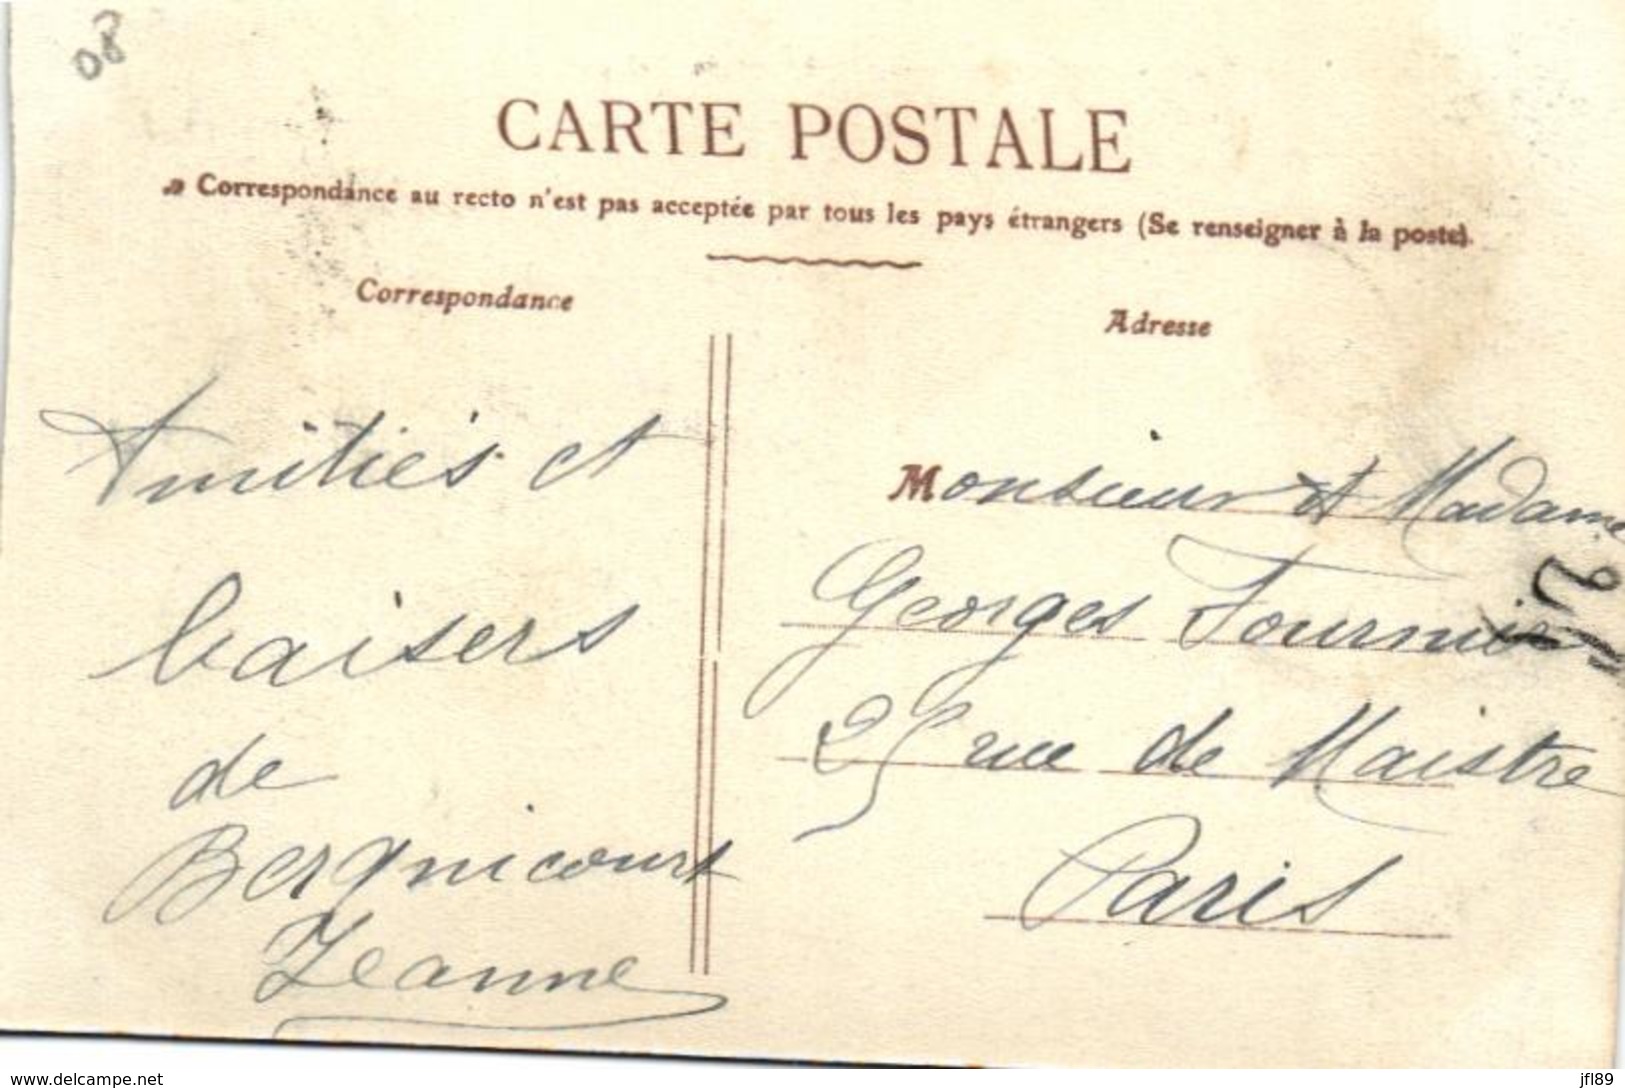 08
CARTE POSTALE
Correspondance au recto n'est pas acceptée par tous les pays étrangers (Se renseigner à la poste).
Correspondance
Adresse
Amitiés et
baisers
de
Bergnicourt
Jeanne
Monsieur et Madame
Georges Fournier
25 rue de Maistre
Paris
www.delcampe.net
jfl89